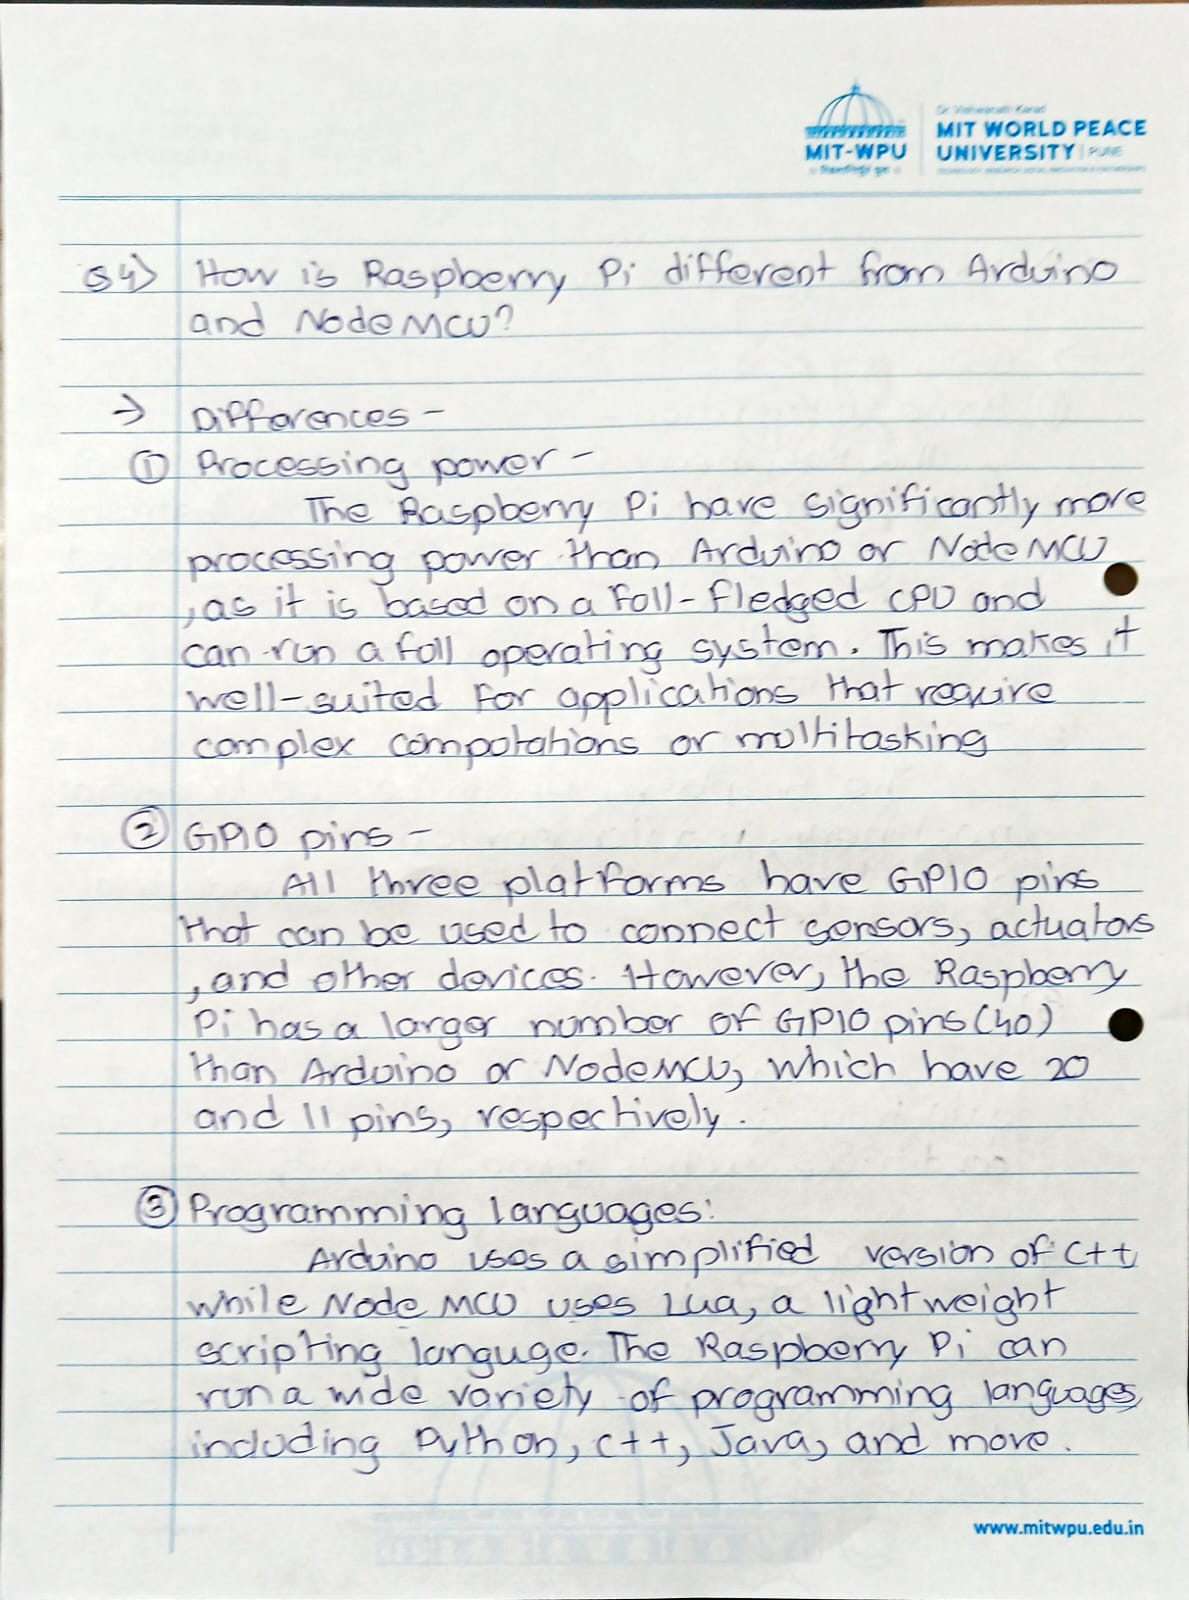 Dr. Vishwanath Karad
MIT WORLD PEACE
UNIVERSITY | PUNE
MIT-WPU
Q4) How is Raspberry Pi different from Arduino
and NodeMCU?
→ Differences -
① Processing power -
The Raspberry Pi have significantly more
processing power than Arduino or NodeMCU
, as it is based on a full-fledged CPU and
can run a full operating system. This makes it
well-suited for applications that require
complex computations or multitasking
② GPIO pins -
All three platforms have GPIO pins
that can be used to connect sensors, actuators
, and other devices. However, the Raspberry
Pi has a larger number of GPIO pins (40)
than Arduino or NodeMCU, which have 20
and 11 pins, respectively.
③ Programming languages:
Arduino uses a simplified version of C++
while NodeMCU uses Lua, a lightweight
scripting languge. The Raspberry Pi can
run a wide variety of programming languages,
including Python, C++, Java, and more.
www.mitwpu.edu.in